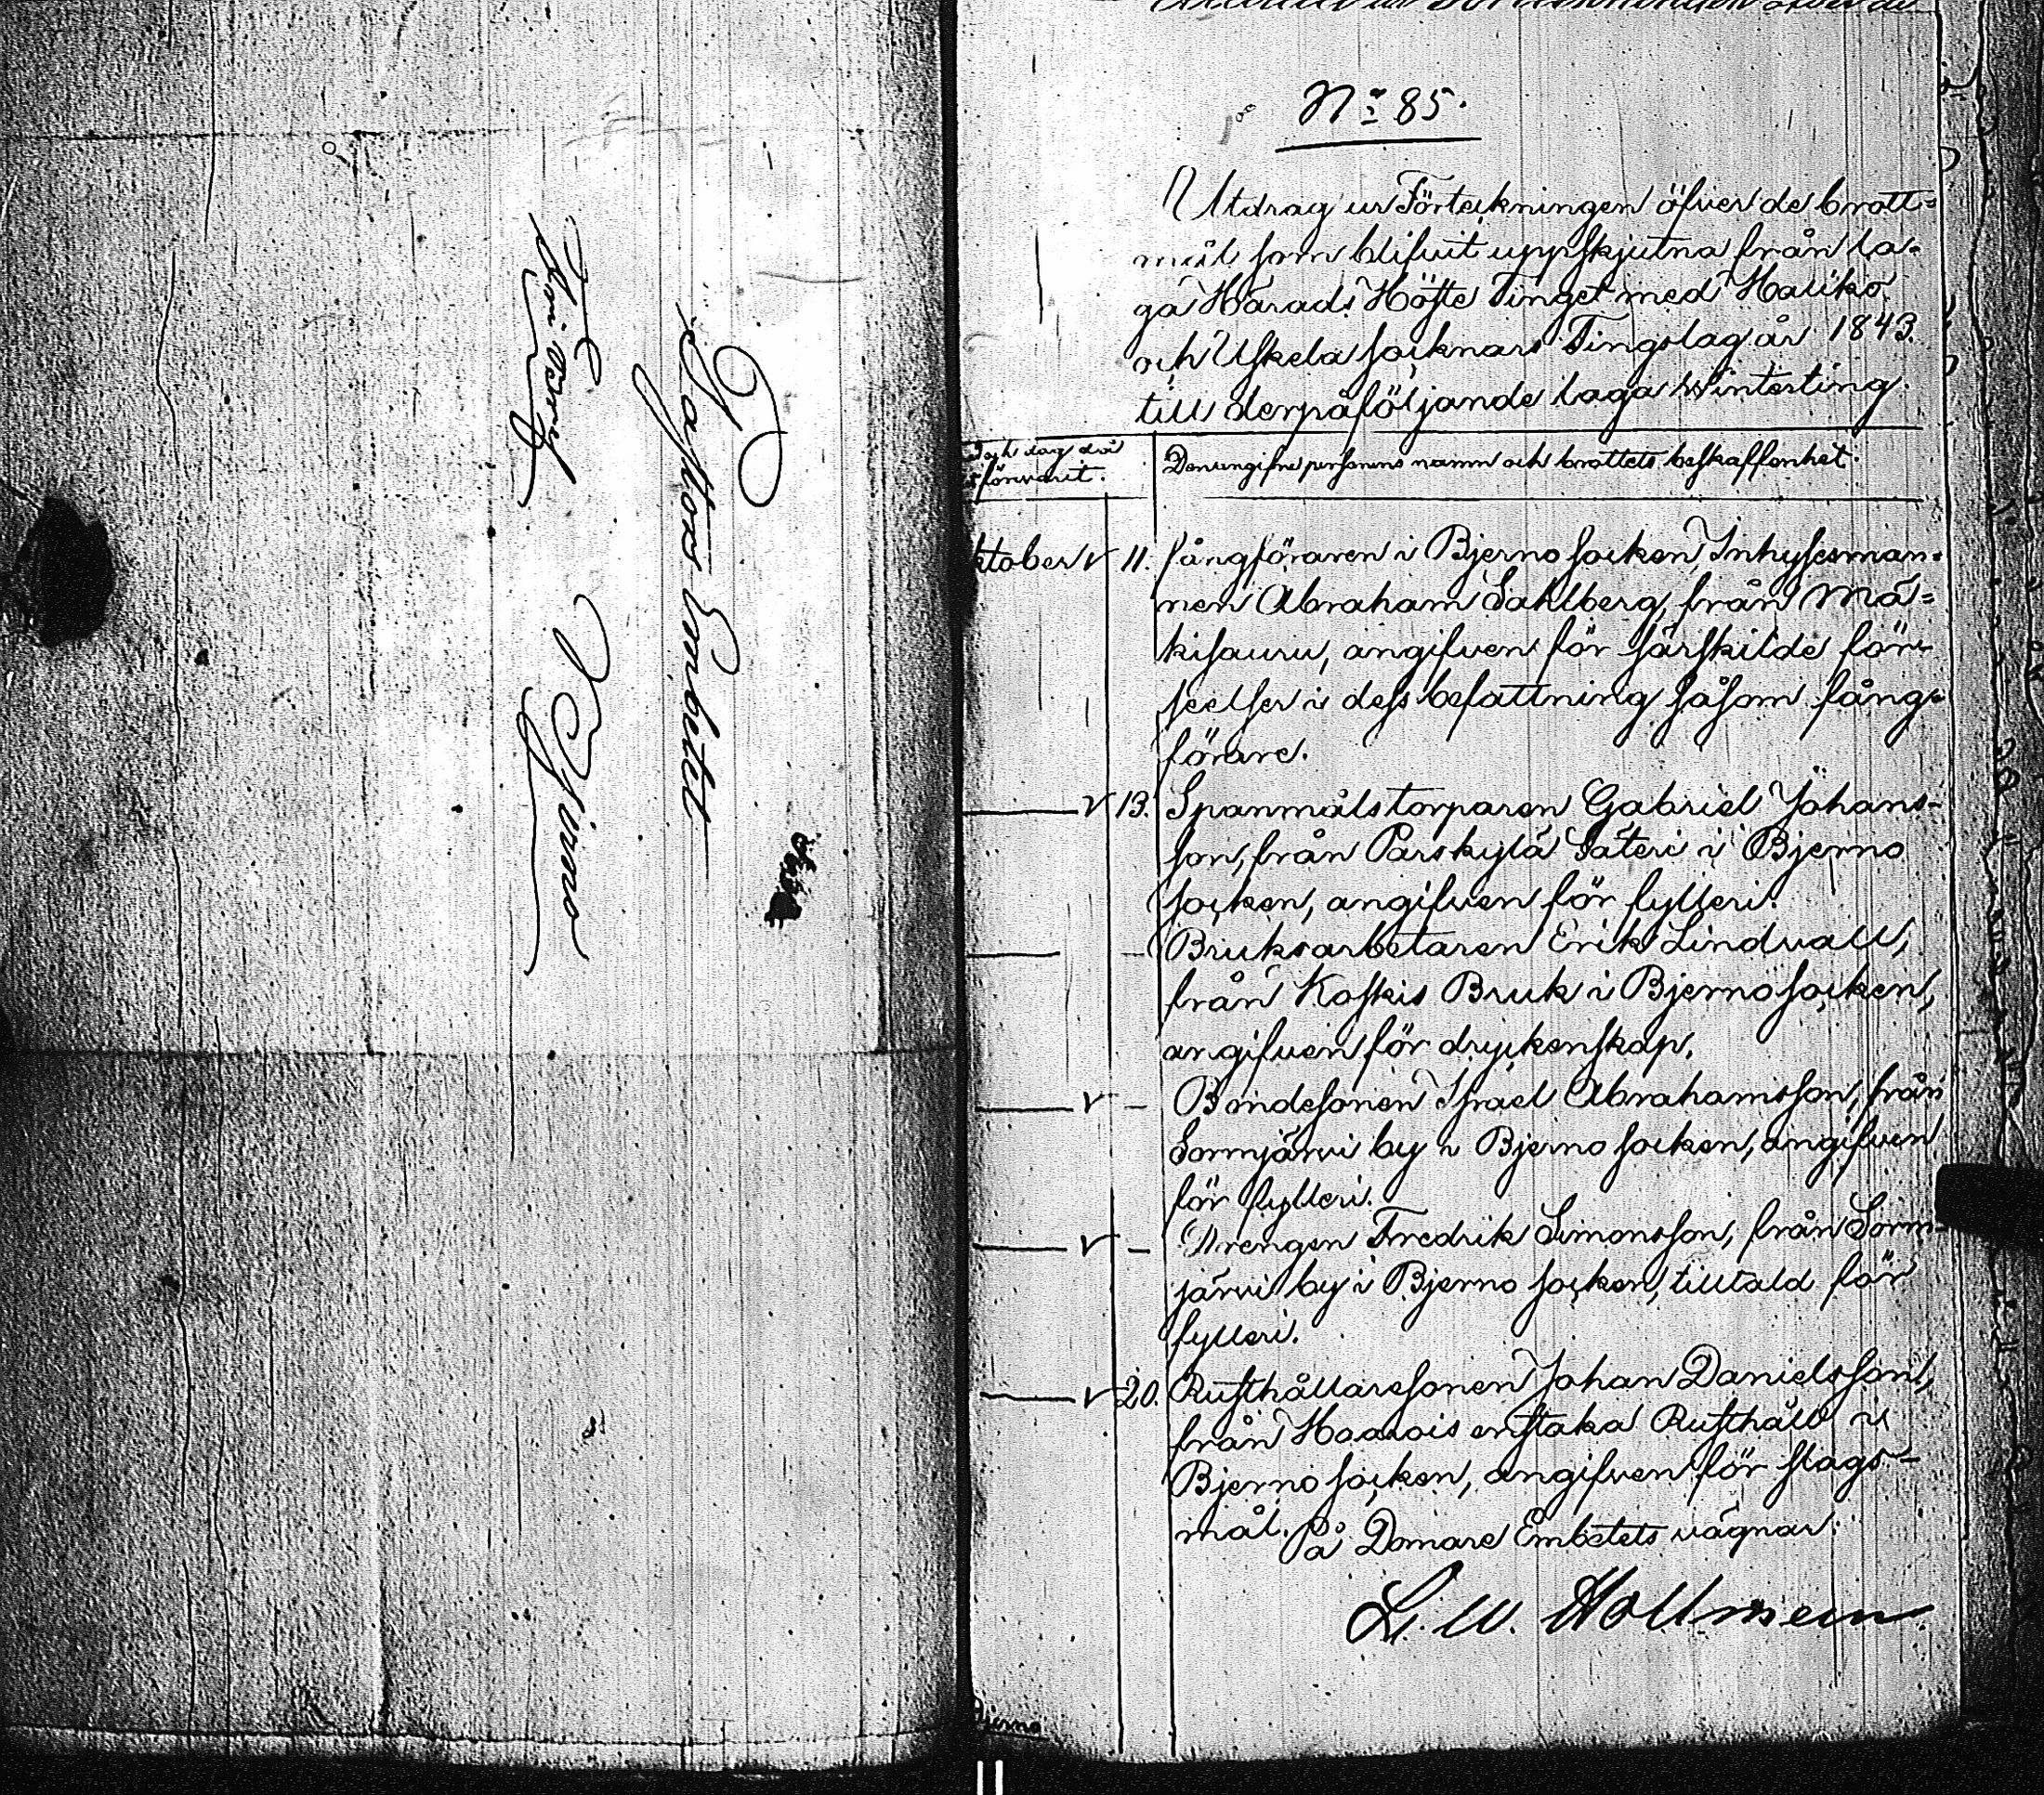 Pastors Embetet
Bjerno
No 85.
Utdrag ur Förteckningen öfver de brott=
mål som blifvit uppskjutna från la=
ga Härads Höste Tinget med Haliko
och Uskela socknars Tingslag år 1843.
till derpåföljande laga Winterting.
och dag då
förevarit.
Den angifne personens namn och brottets beskaffenhet.
ktober 11. fångföraren i Bjerno socken, Inhysesman=
nen Abraham Sahlberg, från Mä=
kisauru, angifven för särskilde för=
seelser i dess befattning såsom fång=
förare.
13. Spanmålstorparen Gabriel Johans-
son, från Pärskylä Säteri i Bjerno
socken, angifven för fylleri.
— Bruksarbetaren Erik Lindvall,
från Koskis Bruk i Bjerno socken,
angifven för dryckenskap.
— Bondesonen Israel Abrahamsson, från
Sormjärvi by i Bjerno socken, angifven
för fylleri.
— Drengen Fredrik Simonsson, från Sorm=
järvi by i Bjerno socken, tilltald för
fylleri.
20. Rusthållaresonen Johan Danielsson,
från enstaka Rusthåll i
Bjerno socken, angifven för slags-
mål.
På Domare Embetets vägnar:
Bjerno